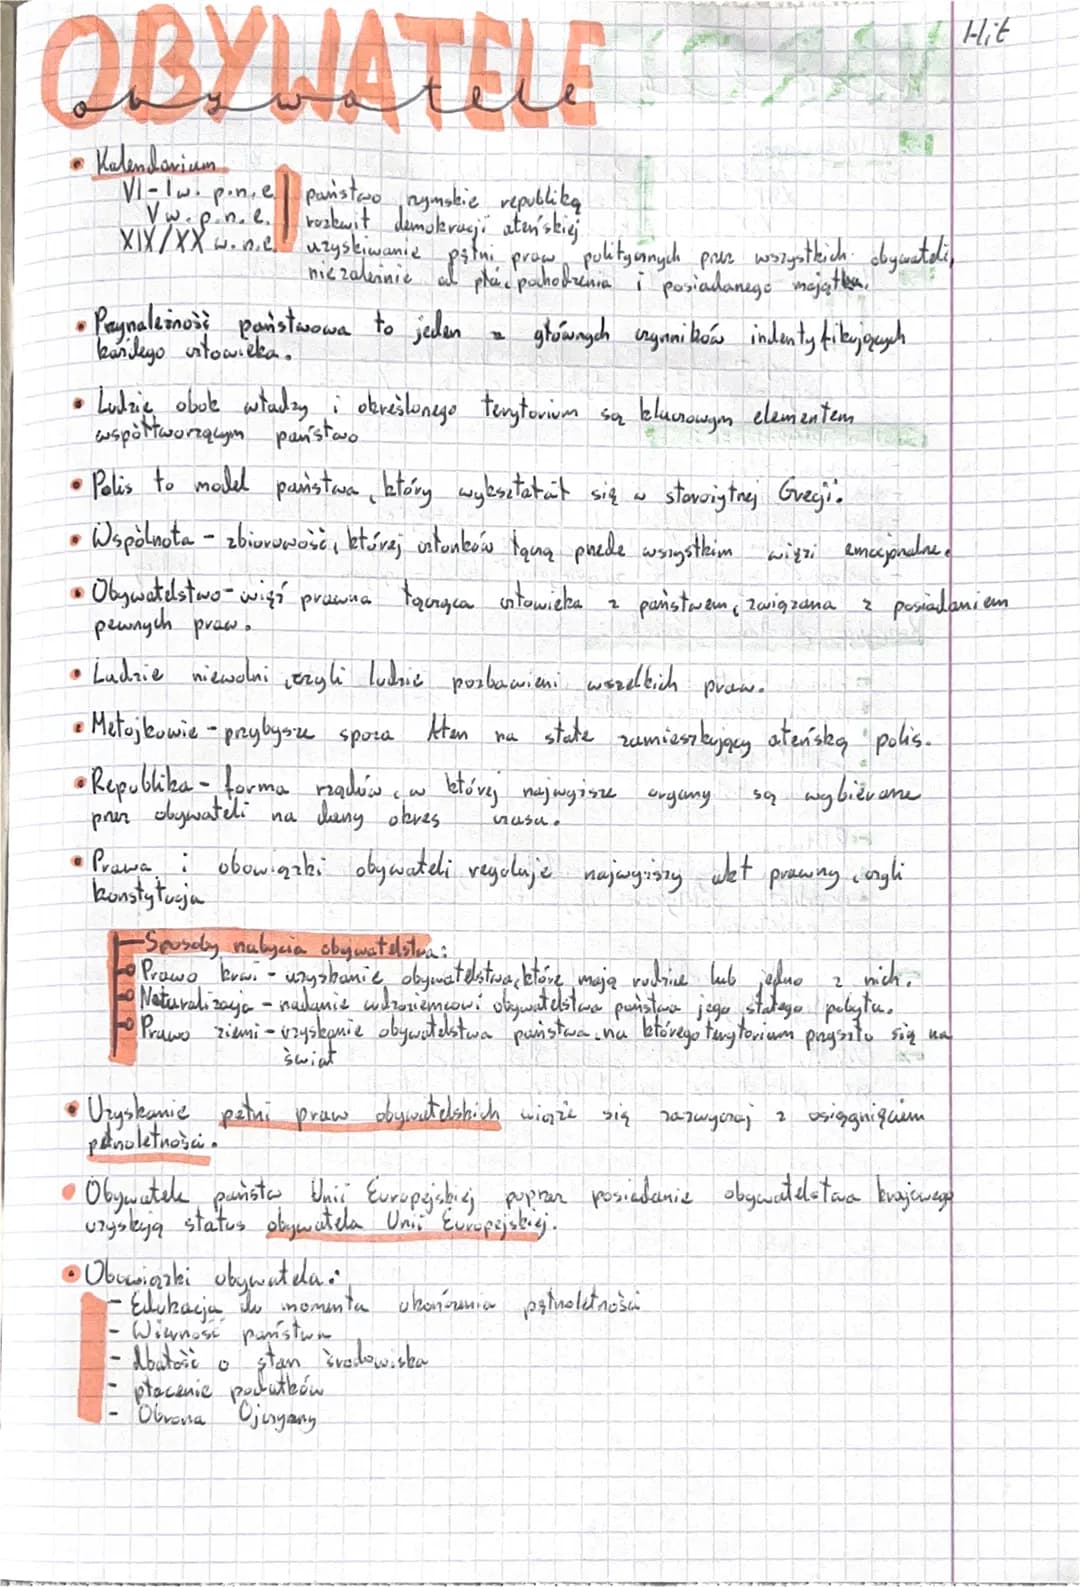 OBYWATELE
obywatele
Hit
• Kalendarium
VI-I w. p.n.e. państwo rzymskie republiką
V w. p.n.e. rozkwit demokracji ateńskiej
XIX/XX w. n.e. uzyskiwanie pełni praw politycznych przez wszystkich obywateli,
niezależnie od płci, pochodzenia i posiadanego majątku.
• Przynależność państwowa to jeden z głównych czynników indentyfikujących
każdego człowieka.
• Ludzie obok władzy i określonego terytorium są kluczowym elementem
współtworzącym państwo
• Polis to model państwa, który wykształcił się w starożytnej Grecji.
• Wspólnota - zbiorowość, której członków łączą przede wszystkim więzi emocjonalne.
• Obywatelstwo - więź prawna łącząca człowieka z państwem, związana z posiadaniem
pewnych praw.
• Ludzie niewolni, czyli ludzie pozbawieni wszelkich praw.
• Metojkowie - przybysze spoza Aten na stałe zamieszkujący ateńską polis.
• Republika - forma rządów, w której najwyższe organy są wybierane
przez obywateli na dany okres czasu.
• Prawa i obowiązki obywateli reguluje najwyższy akt prawny, czyli
konstytucja
Sposoby nabycia obywatelstwa:
Prawo krwi - uzyskanie obywatelstwa, które mają rodzice lub jedno z nich.
Naturalizacja - nadanie cudzoziemcowi obywatelstwa państwa jego stałego pobytu.
Prawo ziemi - uzyskanie obywatelstwa państwa, na którego terytorium przyszło się na
świat
• Uzyskanie pełni praw obywatelskich wiąże się zazwyczaj z osiągnięciem
pełnoletności.
• Obywatele państw Unii Europejskiej poprzez posiadanie obywatelstwa krajowego
uzyskują status obywatela Unii Europejskiej.
• Obowiązki obywatela:
- Edukacja do momentu ukończenia pełnoletności
- Wierność państwu
- dbałość o stan środowiska
- płacenie podatków
- Obrona Ojczyzny